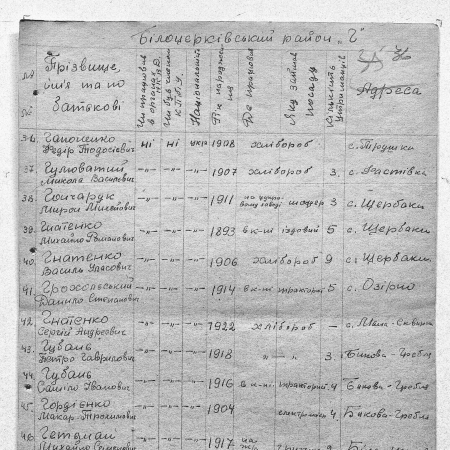 Білоцерківський район "Г"
Прізвище, ім'я та по батькові
Чи працював в органах НКВД
Чи був членом КПбУ
Національність
Рік народження
Де працював
Яку займав посаду
Кількість утриманців
Адреса
36. Гапоненко Федір Тодосієвич ні ні укр 1908 хлібороб с. Трушки
37. Гуловатий Микола Васильович -"- -"- -"- 1907 хлібороб 3. с. Фастівка
38. Гончарук Мирон -"- -"- -"- 1911 3 с. Щербаки
39. Гнатенко Михайло Романович -"- -"- -"- 1893 в к-ні їздовий 5 с. Щербаки
40. Гнатенко Василь Уласович -"- -"- -"- 1906 хлібороб 9 с. Щербаки
41. Грохольський Данило Степанович -"- -"- -"- 1914 в к-ні тракторист 5 с. Озірно
42. Гнатенко Сергій Андреєвич -"- -"- -"- 1922 хлібороб — с. Мала-Сквирка
43. Губань Петро Гаврилович -"- -"- -"- 1918 -"- 3 Бикова-Гребля
44. Губань Данило Іванович -"- -"- -"- 1916 в к-ні тракторист 4 Бикова-Гребля
45. Гордієнко Макар Трохимович -"- -"- -"- 1904 4 Бикова-Гребля
46. Гетьман Михайло -"- -"- -"- 1917 на